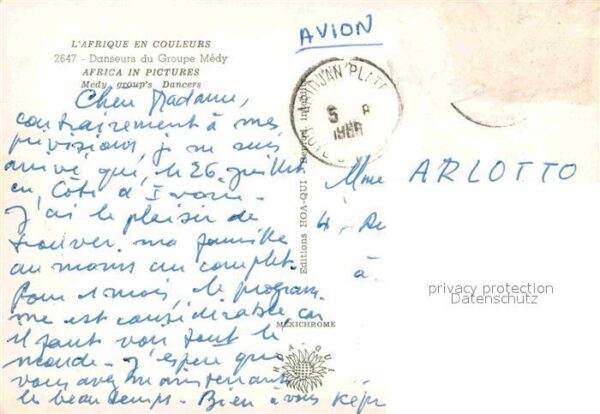 L'AFRIQUE EN COULEURS
2647 - Danseurs du Groupe Médy
AFRICA IN PICTURES
Medy group's Dancers
AVION
Chère Madame,
contrairement à mes
prévisions, je ne suis
arrivé qui, le 26 juillet
en Côte d'Ivoire.
J'ai le plaisir de
trouver ma famille
au moins au complet.
Pour 1 mois, le program-
me est considérable car
il faut voir tout le
monde - J'espère que
vous avez maintenant
le beau temps - Bien à vous
Editions HOA-QUI
MEXICHROME
HOA-QUI
ABIDJAN PLATEAU
5 8
Mme ARLOTTO
4
à
privacy protection
Datenschutz